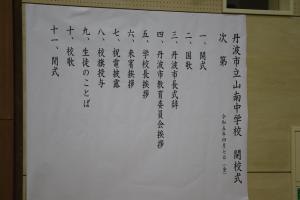 丹波市立山南中学校　開校式
令和五年四月七日（金）
次第
一、開式
二、国歌
三、丹波市長式辞
四、丹波市教育委員会挨拶
五、学校長挨拶
六、来賓挨拶
七、祝電披露
八、校旗授与
九、生徒のことば
十、校歌
十一、閉式